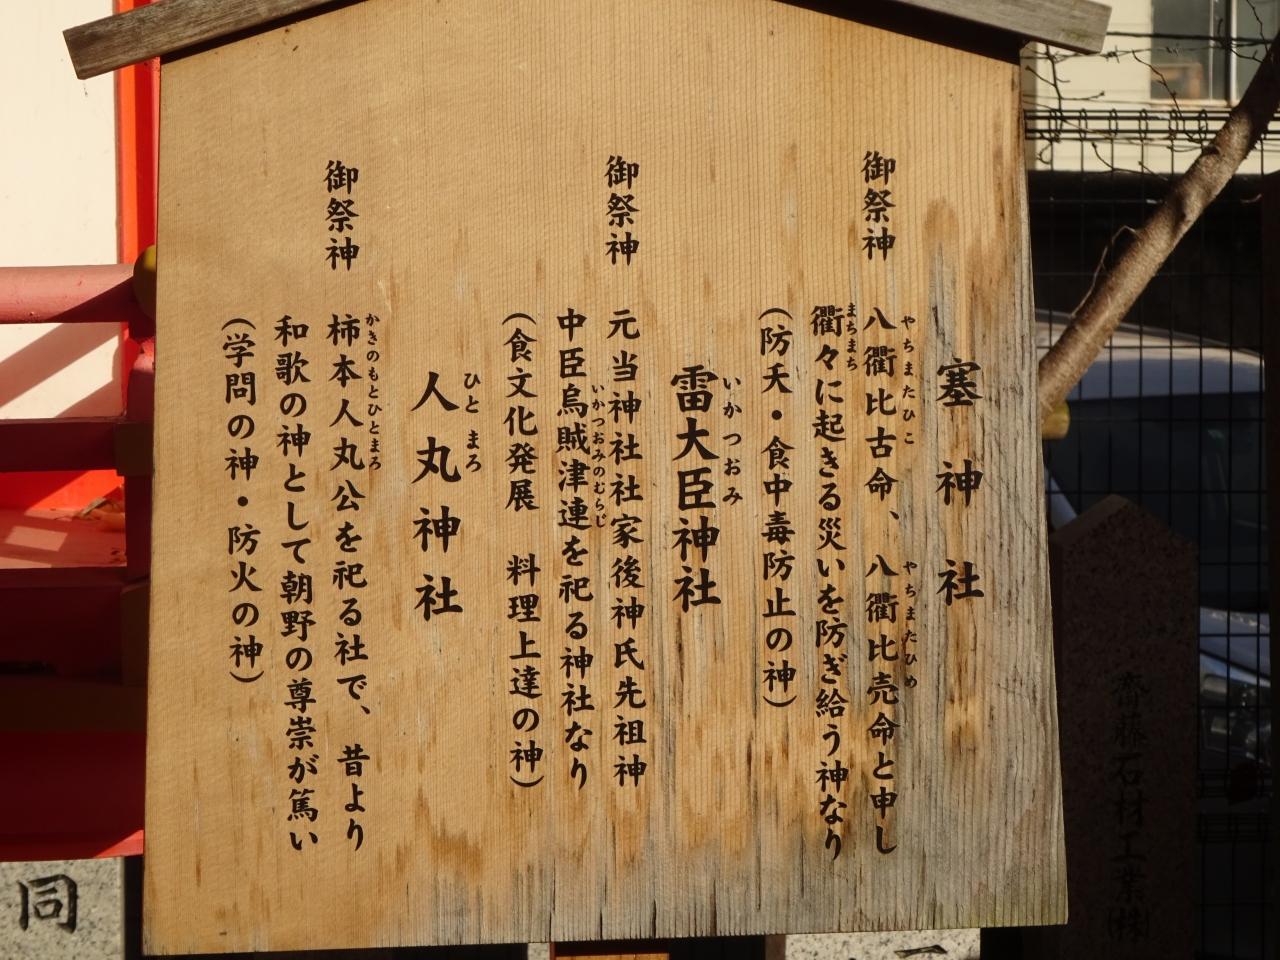 塞神社
御祭神 八衢比古命、八衢比売命と申し
やちまたひこ やちまたひめ
衢々に起きる災いを防ぎ給う神なり
まちまち
(防夭・食中毒防止の神)
雷大臣神社
いかつおみ
御祭神 元当神社社家後神氏先祖神
中臣烏賊津連を祀る神社なり
いかつおみのむらじ
(食文化発展 料理上達の神)
人丸神社
ひとまろ
御祭神 柿本人丸公を祀る社で、昔より
かきのもとひとまろ
和歌の神として朝野の尊崇が篤い
(学問の神・防火の神)
齋藤石材工業㈱
同